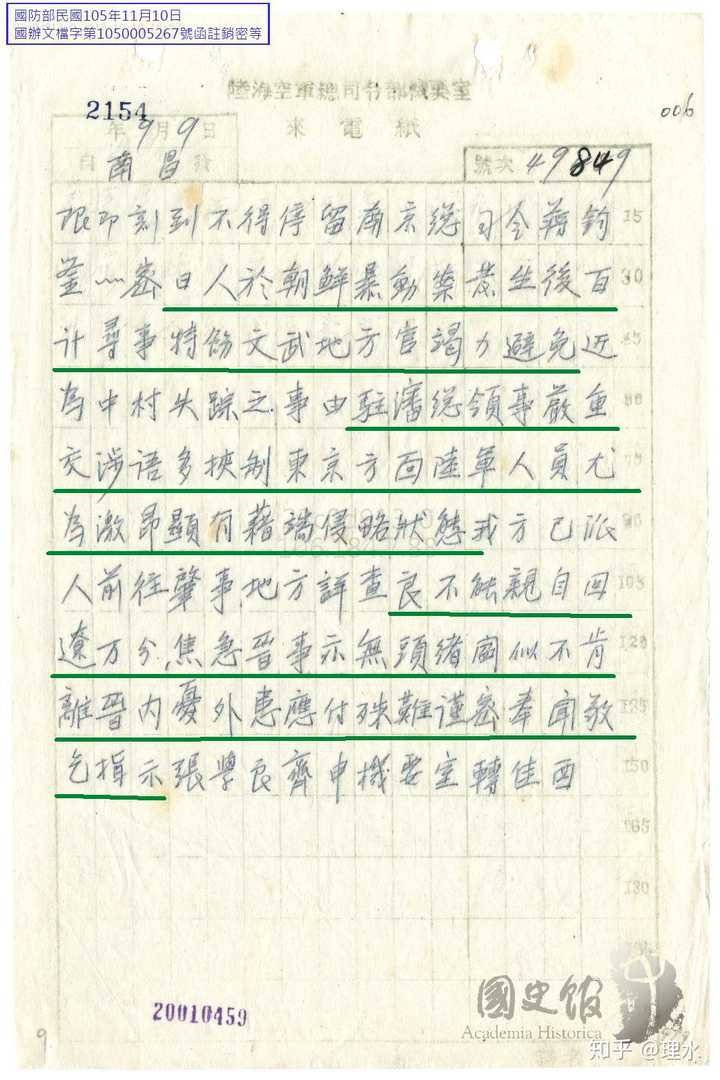 國防部民國105年11月10日
國辦文檔字第1050005267號函註銷密等
陸海空軍總司令部機要室
2154
006
來電紙
年9月9日
自南昌發
號次49849
限即刻到不得停留南京總司令蔣鈞
15
鉴⋯密日人於朝鮮暴動案發生後百
30
计尋事特飭文武地方官竭力避免近
45
為中村失踪之事由駐瀋總領事嚴重
60
交涉语多挾制東京方面陸軍人員尤
75
為激昂顯有藉端侵略狀態我方已派
90
人前往肇事地方詳查良不能親自回
105
遼万分焦急晋事亦無頭緒閻似不肯
120
離晋内憂外患應付殊難谨密奉聞敬
135
乞指示張學良齊申機要室轉佳酉
150
165
180
20010459
9
國史館
Academia Historica
知乎 @理水